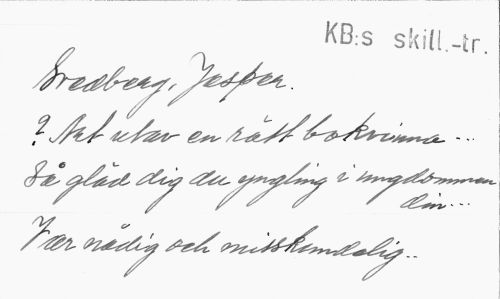 KB:s skill.-tr.
Svedberg, Jesper.
? Art utav en rätt bokvinna ...
Så gläd dig du yngling i ungdommen
din...
Var nådig och misskundelig..